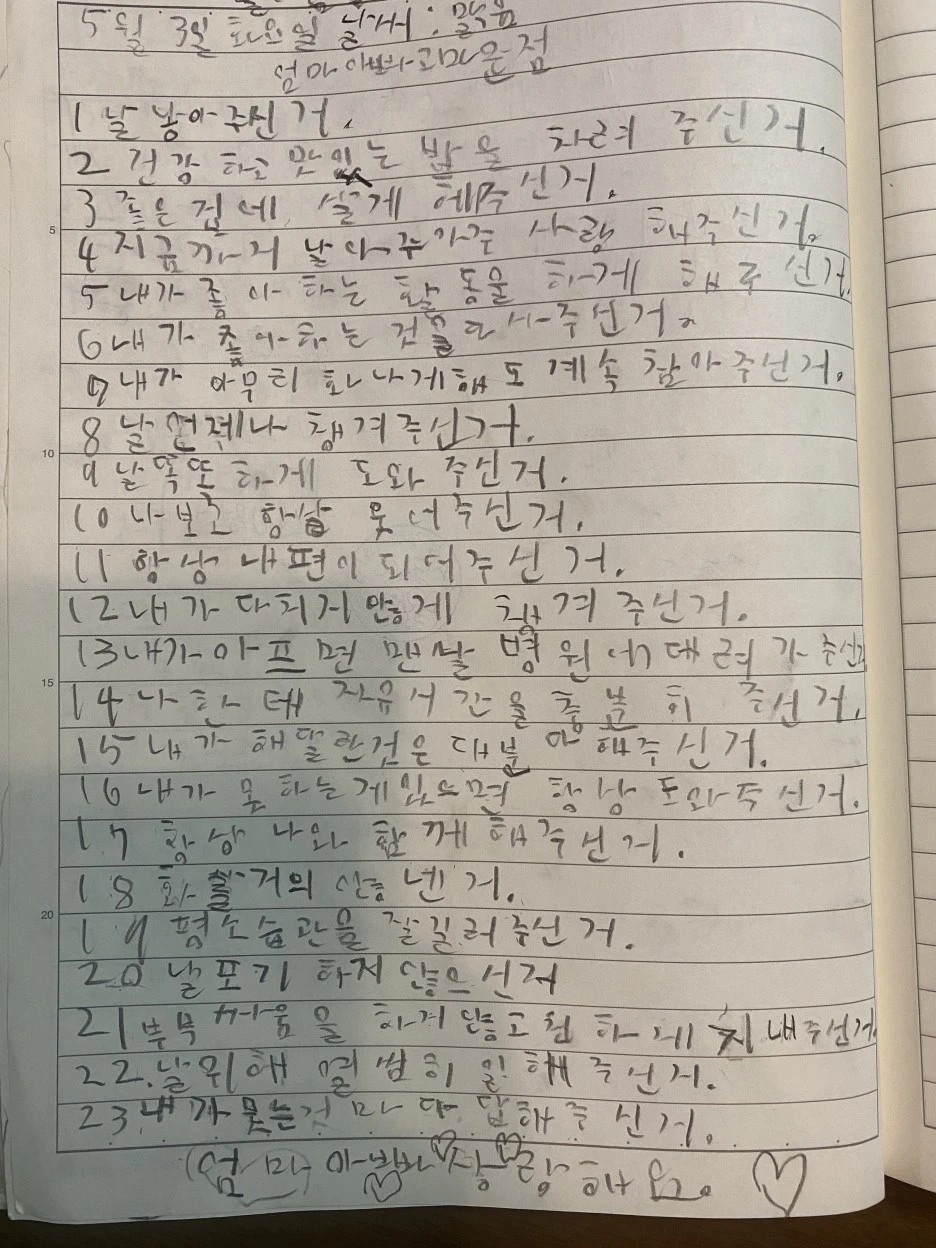 5월 3일 화요일 날씨: 맑음
엄마아빠가고마운점
1 날 낳아주신 거.
2 건강 하고 맛있는 밥을 차려 주신거.
3 좋은 집에 살게 해주신거.
4 지금까지 날 사랑 해주신거.
5 내가 좋아하는 활동을 하게 해주신거.
6 내가 좋아하는 것을 다 사주신거.
7 내가 아무리 화나게해도 계속 참아주신거.
8 날 언제나 챙겨주신거.
9 날 똑똑하게 도와주신거.
10 나보고 항상 웃어주신거.
11 항상 내편이 되어주신 거.
12 내가 다치지 않게 챙겨 주신거.
13 내가아프면 맨날 병원에데려가주신거
14 나한테 자유시간을 충분히 주신거.
15 내가 해달란건은 대부분 다 해주신거.
16 내가 못하는게있으면 항상 도와주신거.
17 항상 나와 함께해주신거.
18 화를거의 안낸거.
19 평소습관을 잘길러주신거.
20 날포기 하지 않으신거
21 부부싸움을 하지 않고 친하게 지내주신거
22. 날위해 열씸히 일해주신거.
23 내가묻는것마다 답해주신거.
(엄마 아빠 사랑해요.